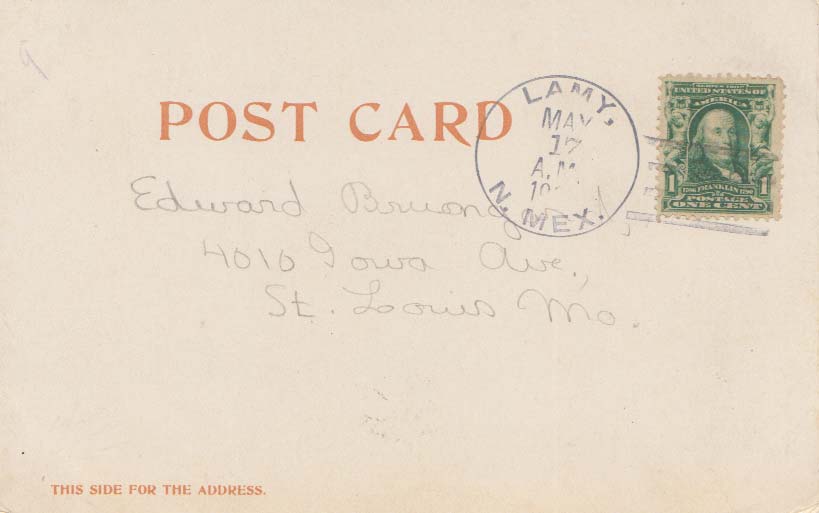 POST CARD
LAMY,
MAY
17
A.M.
N. MEX.
SERIES 1902
UNITED STATES OF
AMERICA
1 1706 FRANKLIN 1790 1
POSTAGE
ONE CENT
Edward
4010 Iowa Ave.,
St. Louis Mo.
THIS SIDE FOR THE ADDRESS.